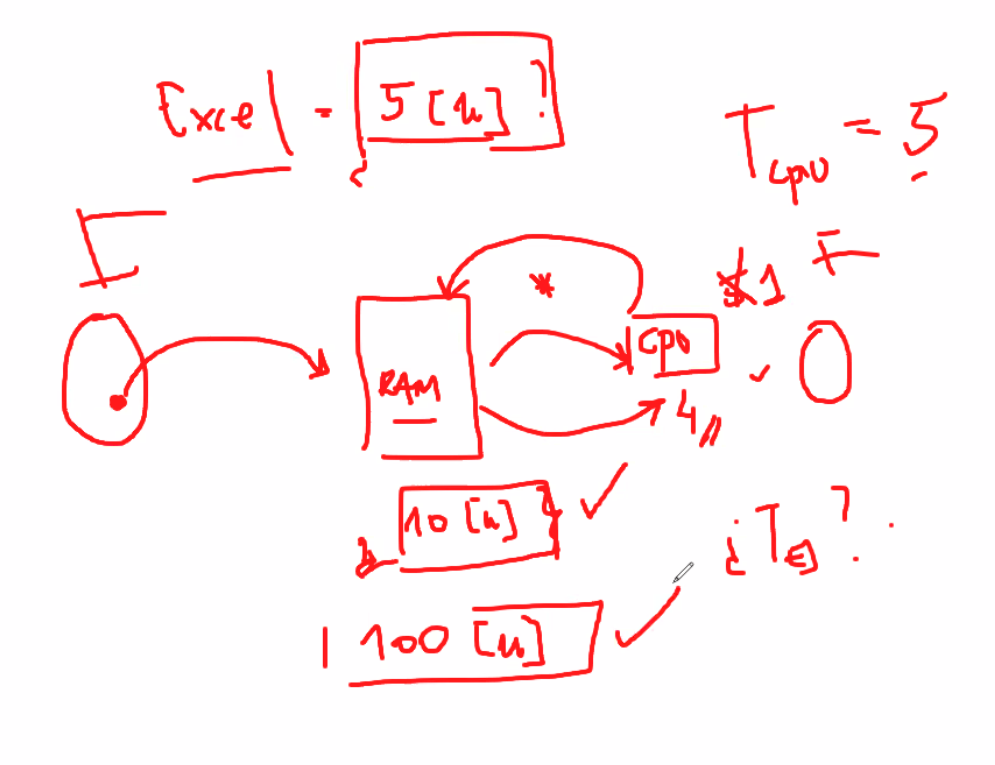 Excel = 5 [u] ?
Tcpu = 5
I
F
*
*1
RAM
CPU
4
10 [u]
¿TE?
100 [u]